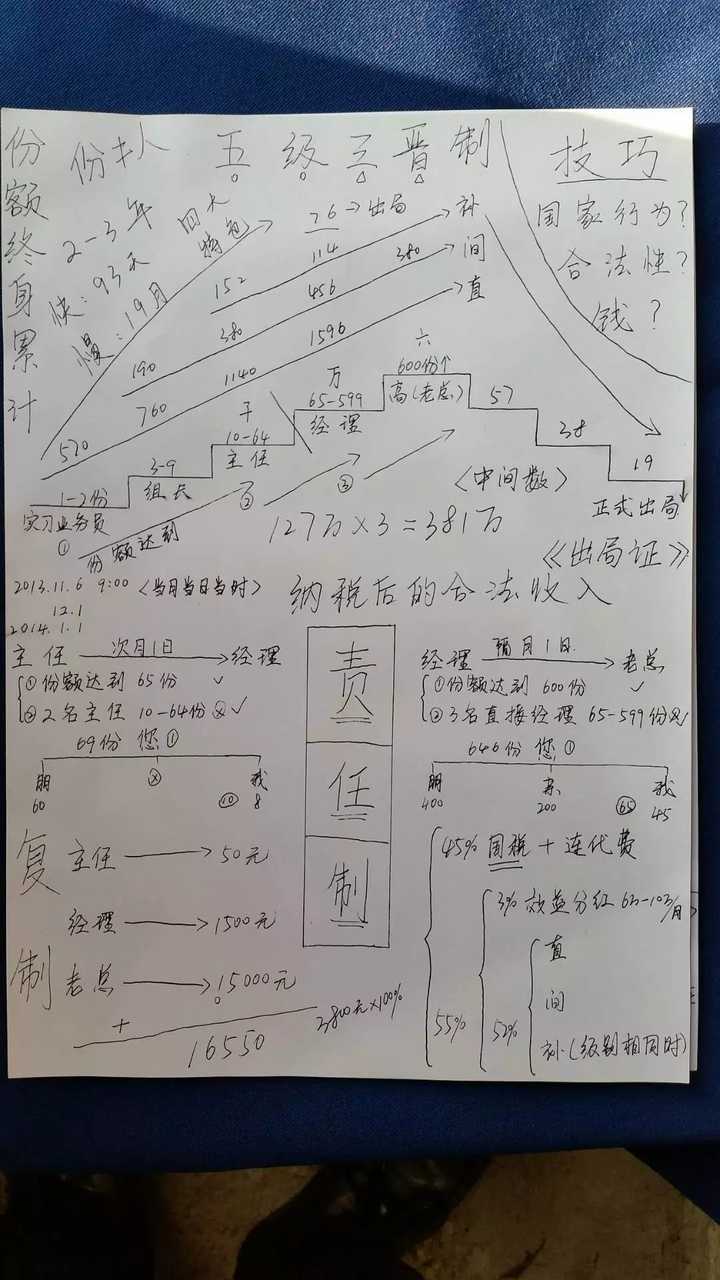 份额终身累计
份扌人 五级三晋制
技巧
国家行为?
合法性?
钱?
2-3年
快:93天
慢:19月
四大特色
76→出局
152 114 补
190 380 456 380 间
520 760 1140 1596 直
1-2份
实习业务员
①
3-9
组长
干
10-64
主任
②
万
65-599
经理
③
六
600份↑
高(老总)
57
38
19
正式出局
份额达到
<中间数>
127万×3=381万
《出局证》
2013.11.6 9:00 <当月当日当时>
12.1
2014.1.1
纳税后的合法收入
主任 次月1日 经理
①份额达到65份 ✓
②2名主任 10-64份 ✓
69份 您①
朋 60
② 
我 8
⑩
责任制
经理 隔月1日 老总
①份额达到600份 ✓
②3名直接经理 65-599份 ✓
646份 您①
朋 400
亲 200
我 45
65
复制
主任→50元
经理→1500元
老总→15000元
+
16550
3800元×100%
45% 国税+连代费
55%
3% 效益分红
52%
直
间
补(级别相同时)